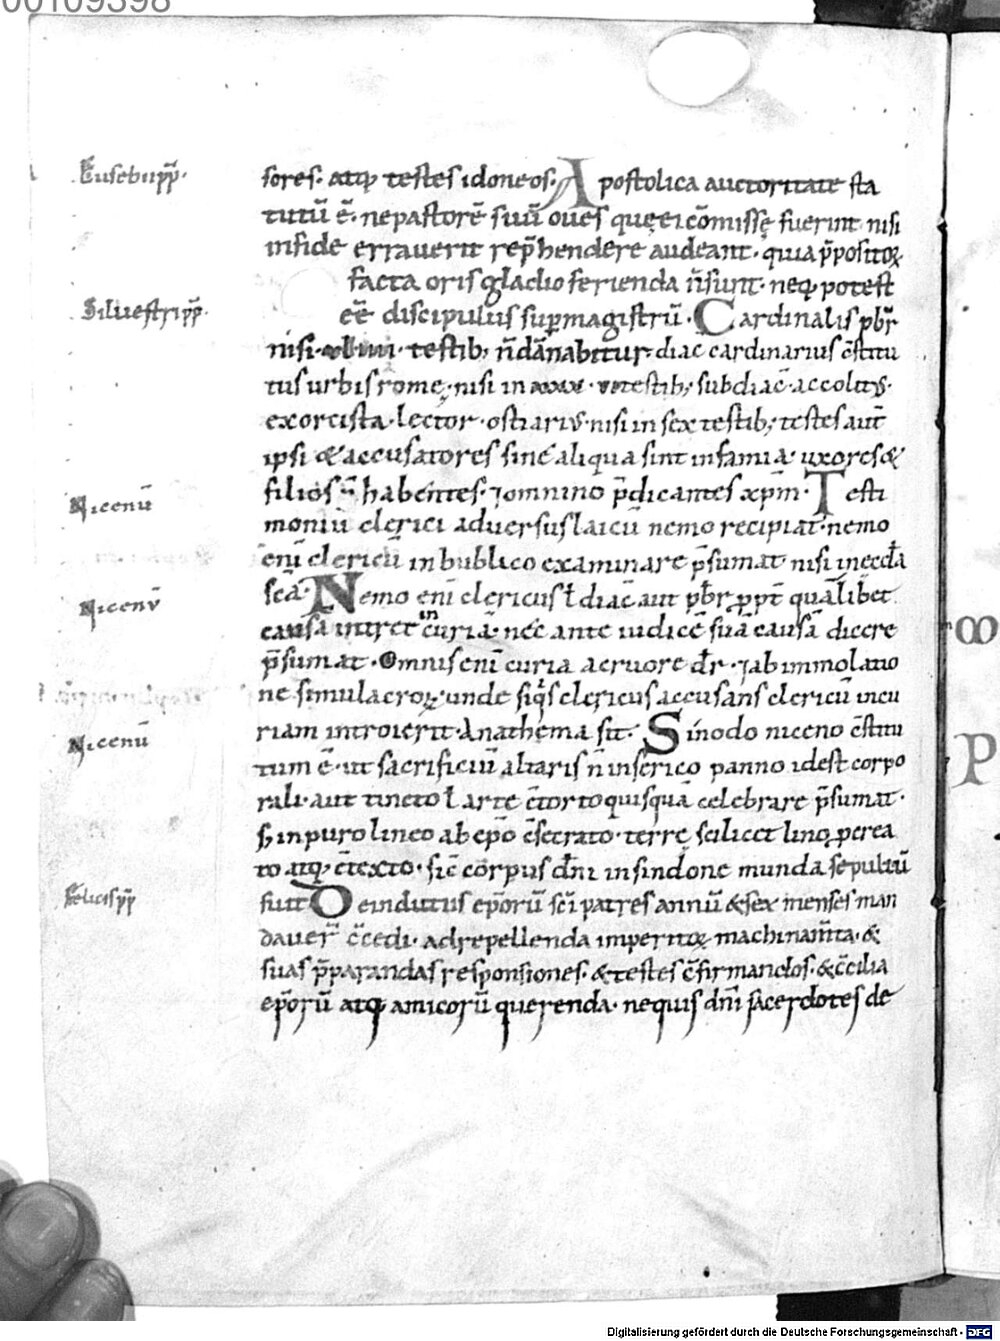 00109398
Eusebii pp̄.
sores. atq; testes idoneos. Apostolica auctoritate sta
tutū ē. ne pastorē suū oues quę ei cōmissę fuerint nisi
in fide errauerit rep̄hendere audeant. quia p̄positoꝝ
facta oris gladio ferienda n̄ sunt. neq; potest
Siluestri pp̄.
eē discipulus sup magistrū. Cardinalis pb̄r
nisi testib; n̄ dānabitur. diac cardinarius c̄stitu
tus urbis romę. nisi in testib; subdiac̄. accolitus.
exorcista. lector. ostiarius. nisi in sex testib; testes aut̄
ipsi & accusatores sine aliqua sint infamia. uxores &
Nicenū
filios habentes. ⁊ omnino p̄dicantes xp̄m. Testi
moniū clerici aduersus laicū nemo recipiat. nemo
enī clericū in bublico examinare p̄sumat nisi in eccła
Nicenu
sc̄a. Nemo enī clericus ł diac̄ aut pb̄r ꝓpt̄ qualibet
causā intret in curiā. nec ante iudicē suā causā dicere
p̄sumat. Omnis enī curia a cruore dr̄. ⁊ ab immolatio
ne simulacroꝝ. unde siq̄s clericus accusans clericū in cu
riam introierit. Anathema sit. Sinodo niceno c̄stitu
Nicenū
tum ē. ut sacrificiū altaris n̄ in serico panno idest corpo
rali. aut tincto ł arte c̄torto quisquā celebrare p̄sumat.
s; in puro lineo ab ep̄o c̄secrato. terrę scilicet lino ꝓcrea
to atq; c̄texto. sic̄ corpus dn̄i in sindone munda sepultū
Felicis pp̄
fuit. Deindutus ep̄orū sc̄i patres annū & sex menses man
dauer̄ c̄cedi. ad repellenda imperitoꝝ machinam̄ta. &
suas p̄parandas responsiones. & testes c̄firmandos. & c̄cilia
ep̄orū atq; amicorū querenda. ne quis dn̄i sacerdotes de
Digitalisierung gefördert durch die Deutsche Forschungsgemeinschaft - DFG